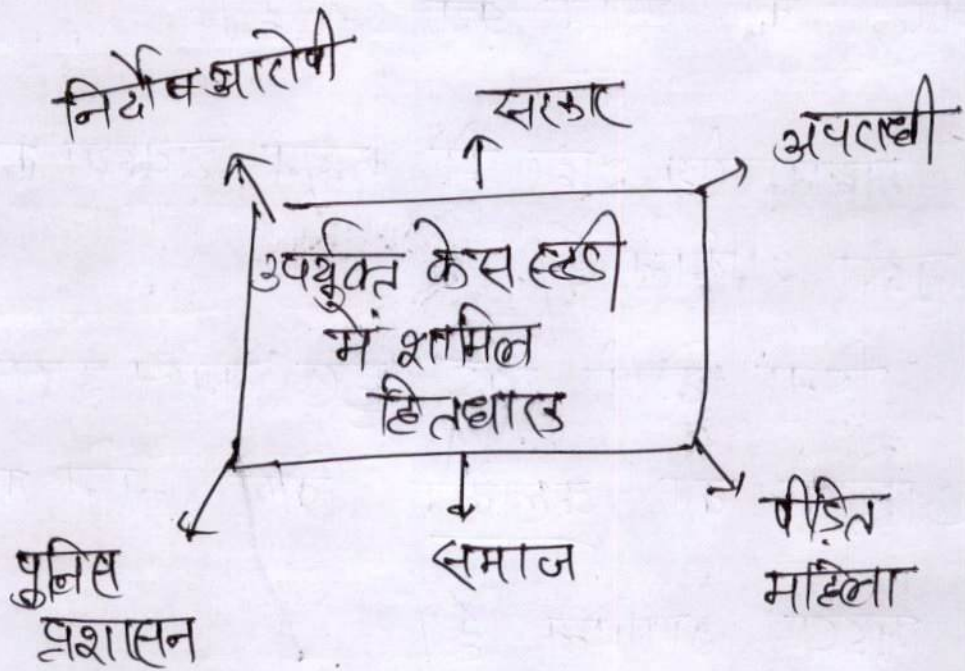 निर्दोष आरोपी
सरकार
अपराधी
उपर्युक्त केस स्टडी
में शामिल
हितधारक
पुलिस
प्रशासन
समाज
पीड़ित
महिला